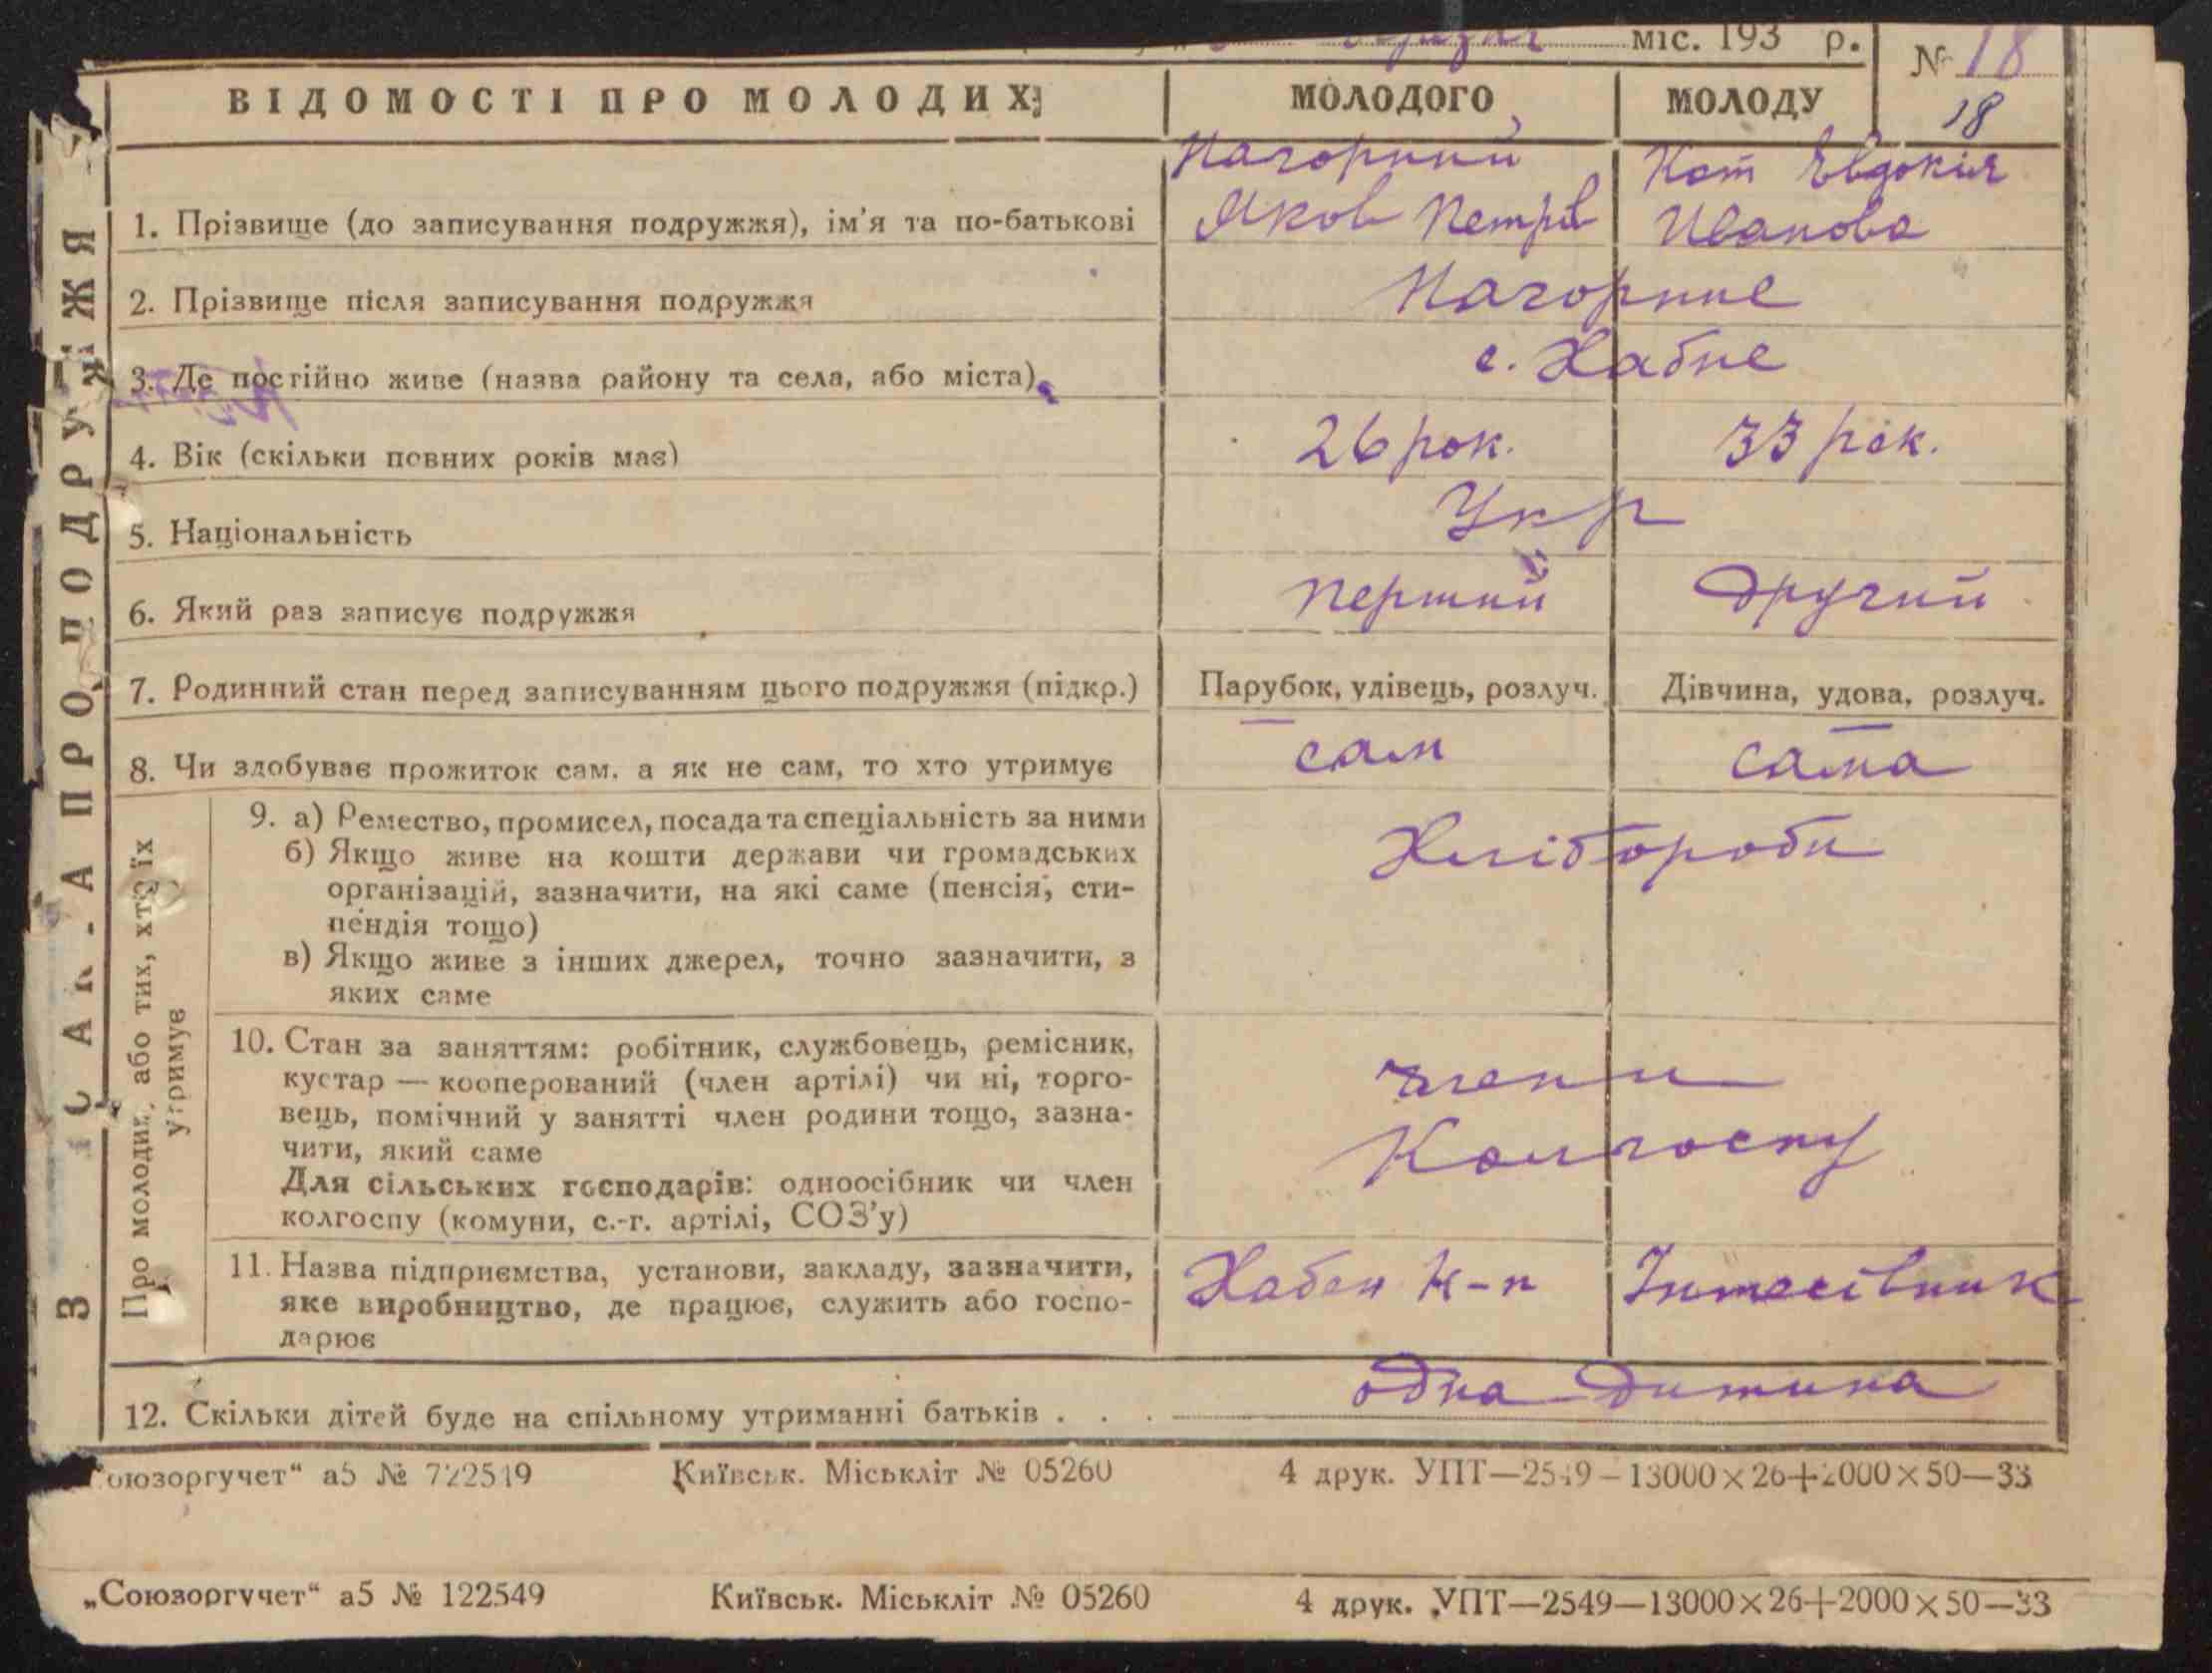 міс. 193 р. № 18
18
ВІДОМОСТІ ПРО МОЛОДИХ: МОЛОДОГО МОЛОДУ
Нагорний Кот Евдокия
1. Прізвище (до записування подружжя), ім'я та по-батькові Яков Петрів Иванова
2. Прізвище після записування подружжя Нагорние
3. Де постійно живе (назва району та села, або міста) с. Хабне
4. Вік (скільки повних років має) 26 рок. 33 рок.
5. Національність Укр
6. Який раз записує подружжя перший другий
7. Родинний стан перед записуванням цього подружжя (підкр.) Парубок, удівець, розлуч. Дівчина, удова, розлуч.
8. Чи здобуває прожиток сам, а як не сам, то хто утримує сам сама
З АПИСАК-А ПРО ПОДРУЖЖЯ
Про молодих, або тих, хто їх
утримує
9. а) Ремество, промисел, посада та спеціальність за ними Хлібороби
б) Якщо живе на кошти держави чи громадських
організацій, зазначити, на які саме (пенсія, сти-
пендія тощо)
в) Якщо живе з інших джерел, точно зазначити, з
яких саме
10. Стан за заняттям: робітник, службовець, ремісник,
кустар — кооперований (член артілі) чи ні, торго- члени
вець, помічний у занятті член родини тощо, зазна-
чити, який саме Колгоспу
Для сільських господарів: одноосібник чи член
колгоспу (комуни, с.-г. артілі, СОЗ'у)
11. Назва підприємства, установи, закладу, зазначити, Хабен К-п
яке виробництво, де працює, служить або госпо-
дарює
12. Скільки дітей буде на спільному утриманні батьків . . . одна дитина
оюзоргучет“ а5 № 722519 Київськ. Міськліт № 05260 4 друк. УПТ—2549—13000×26+2000×50—33
„Союзоргучет“ а5 № 122549 Київськ. Міськліт № 05260 4 друк. УПТ—2549—13000×26+2000×50—33